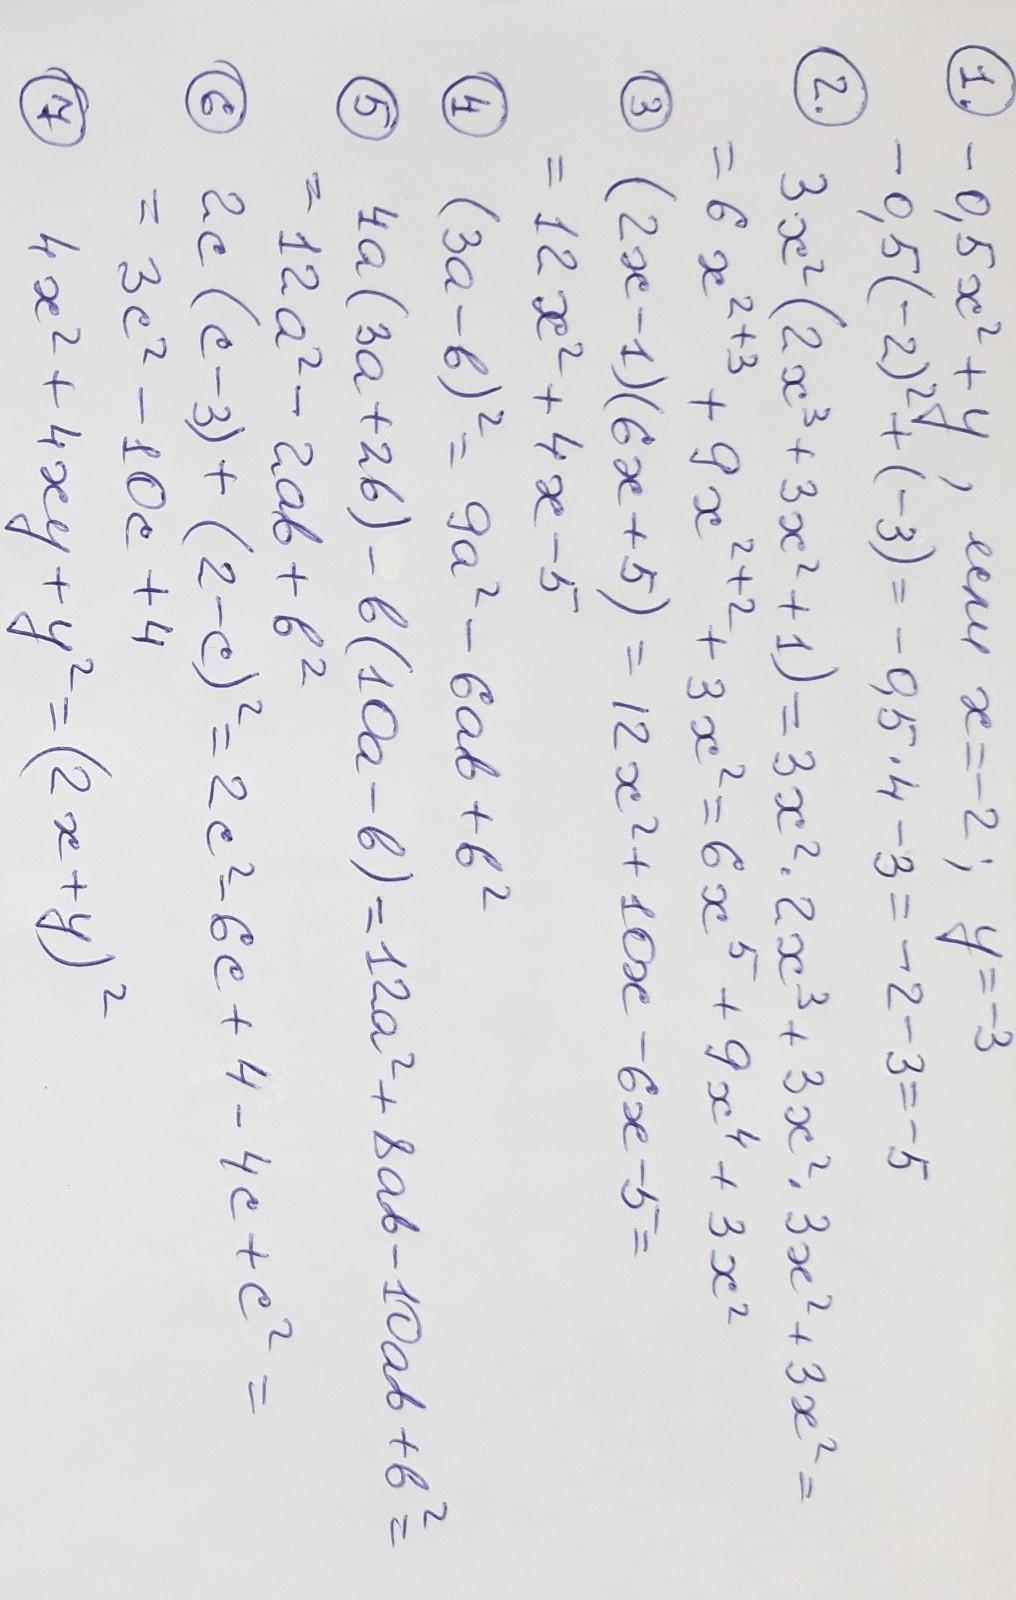 1. -0,5x² + y, если x=-2; y=-3
-0,5(-2)² + (-3) = -0,5·4 -3 = -2-3=-5
2. 3x²(2x³+3x²+1)=3x²·2x³+3x²·3x²+3x²=
=6x²⁺³+9x²⁺²+3x²=6x⁵+9x⁴+3x²
3 (2x-1)(6x+5)=12x²+10x-6x-5=
=12x²+4x-5
4 (3a-b)²=9a²-6ab+b²
5 4a(3a+2b)-b(10a-b)=12a²+8ab-10ab+b²=
=12a²-2ab+b²
6 2c(c-3)+(2-c)²=2c²-6c+4-4c+c²=
=3c²-10c+4
7 4x²+4xy+y²=(2x+y)²